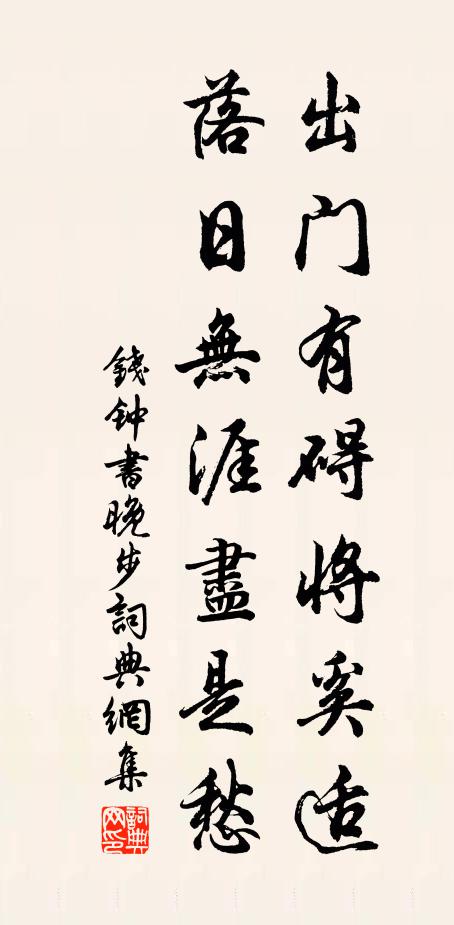 出门有碍将奚适
落日無涯盡是愁
錢钟書晚步詞典網集
詞典网印